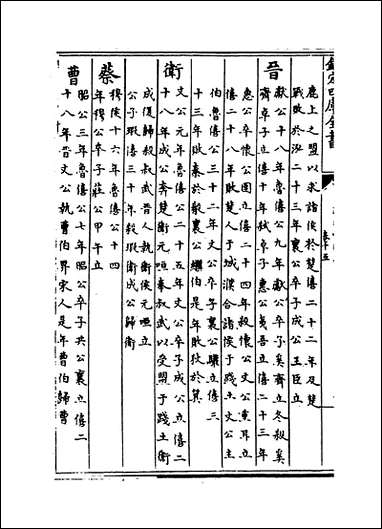 欽定四庫全書
卷十五
鹿上之盟以求諸侯於楚僖二十二年及楚
戰敗於泓二十三年襄公卒子成公王臣立
晉
獻公十八年魯僖公九年獻公卒子奚齊立冬殺奚
齊卓子立僖十年弑卓子惠公夷吾立僖二十三年
惠公卒懷公圉立僖二十四年殺懷公文公重耳立
僖二十八年敗楚人于城濮合諸侯于踐土文公主
伯魯僖公三十二年文公卒子襄公驩立僖三
十三年敗秦於殽襄公繼伯是年敗狄於箕
衛
文公元年魯僖公二十五年文公卒子成公立僖二
十八年成公奔楚衛元咺奉叔武以受盟于踐土衛
成復歸殺叔武晉人執衛侯元咺立
公子瑕僖三十年殺瑕衛成公歸衛
蔡
穆侯十六年魯僖公十四
年穆公卒子莊公甲午立
曹
昭公三年魯僖公七年昭公卒子共公襄立僖二
十八年晉文公執曹伯畀宋人是年曹伯歸曹